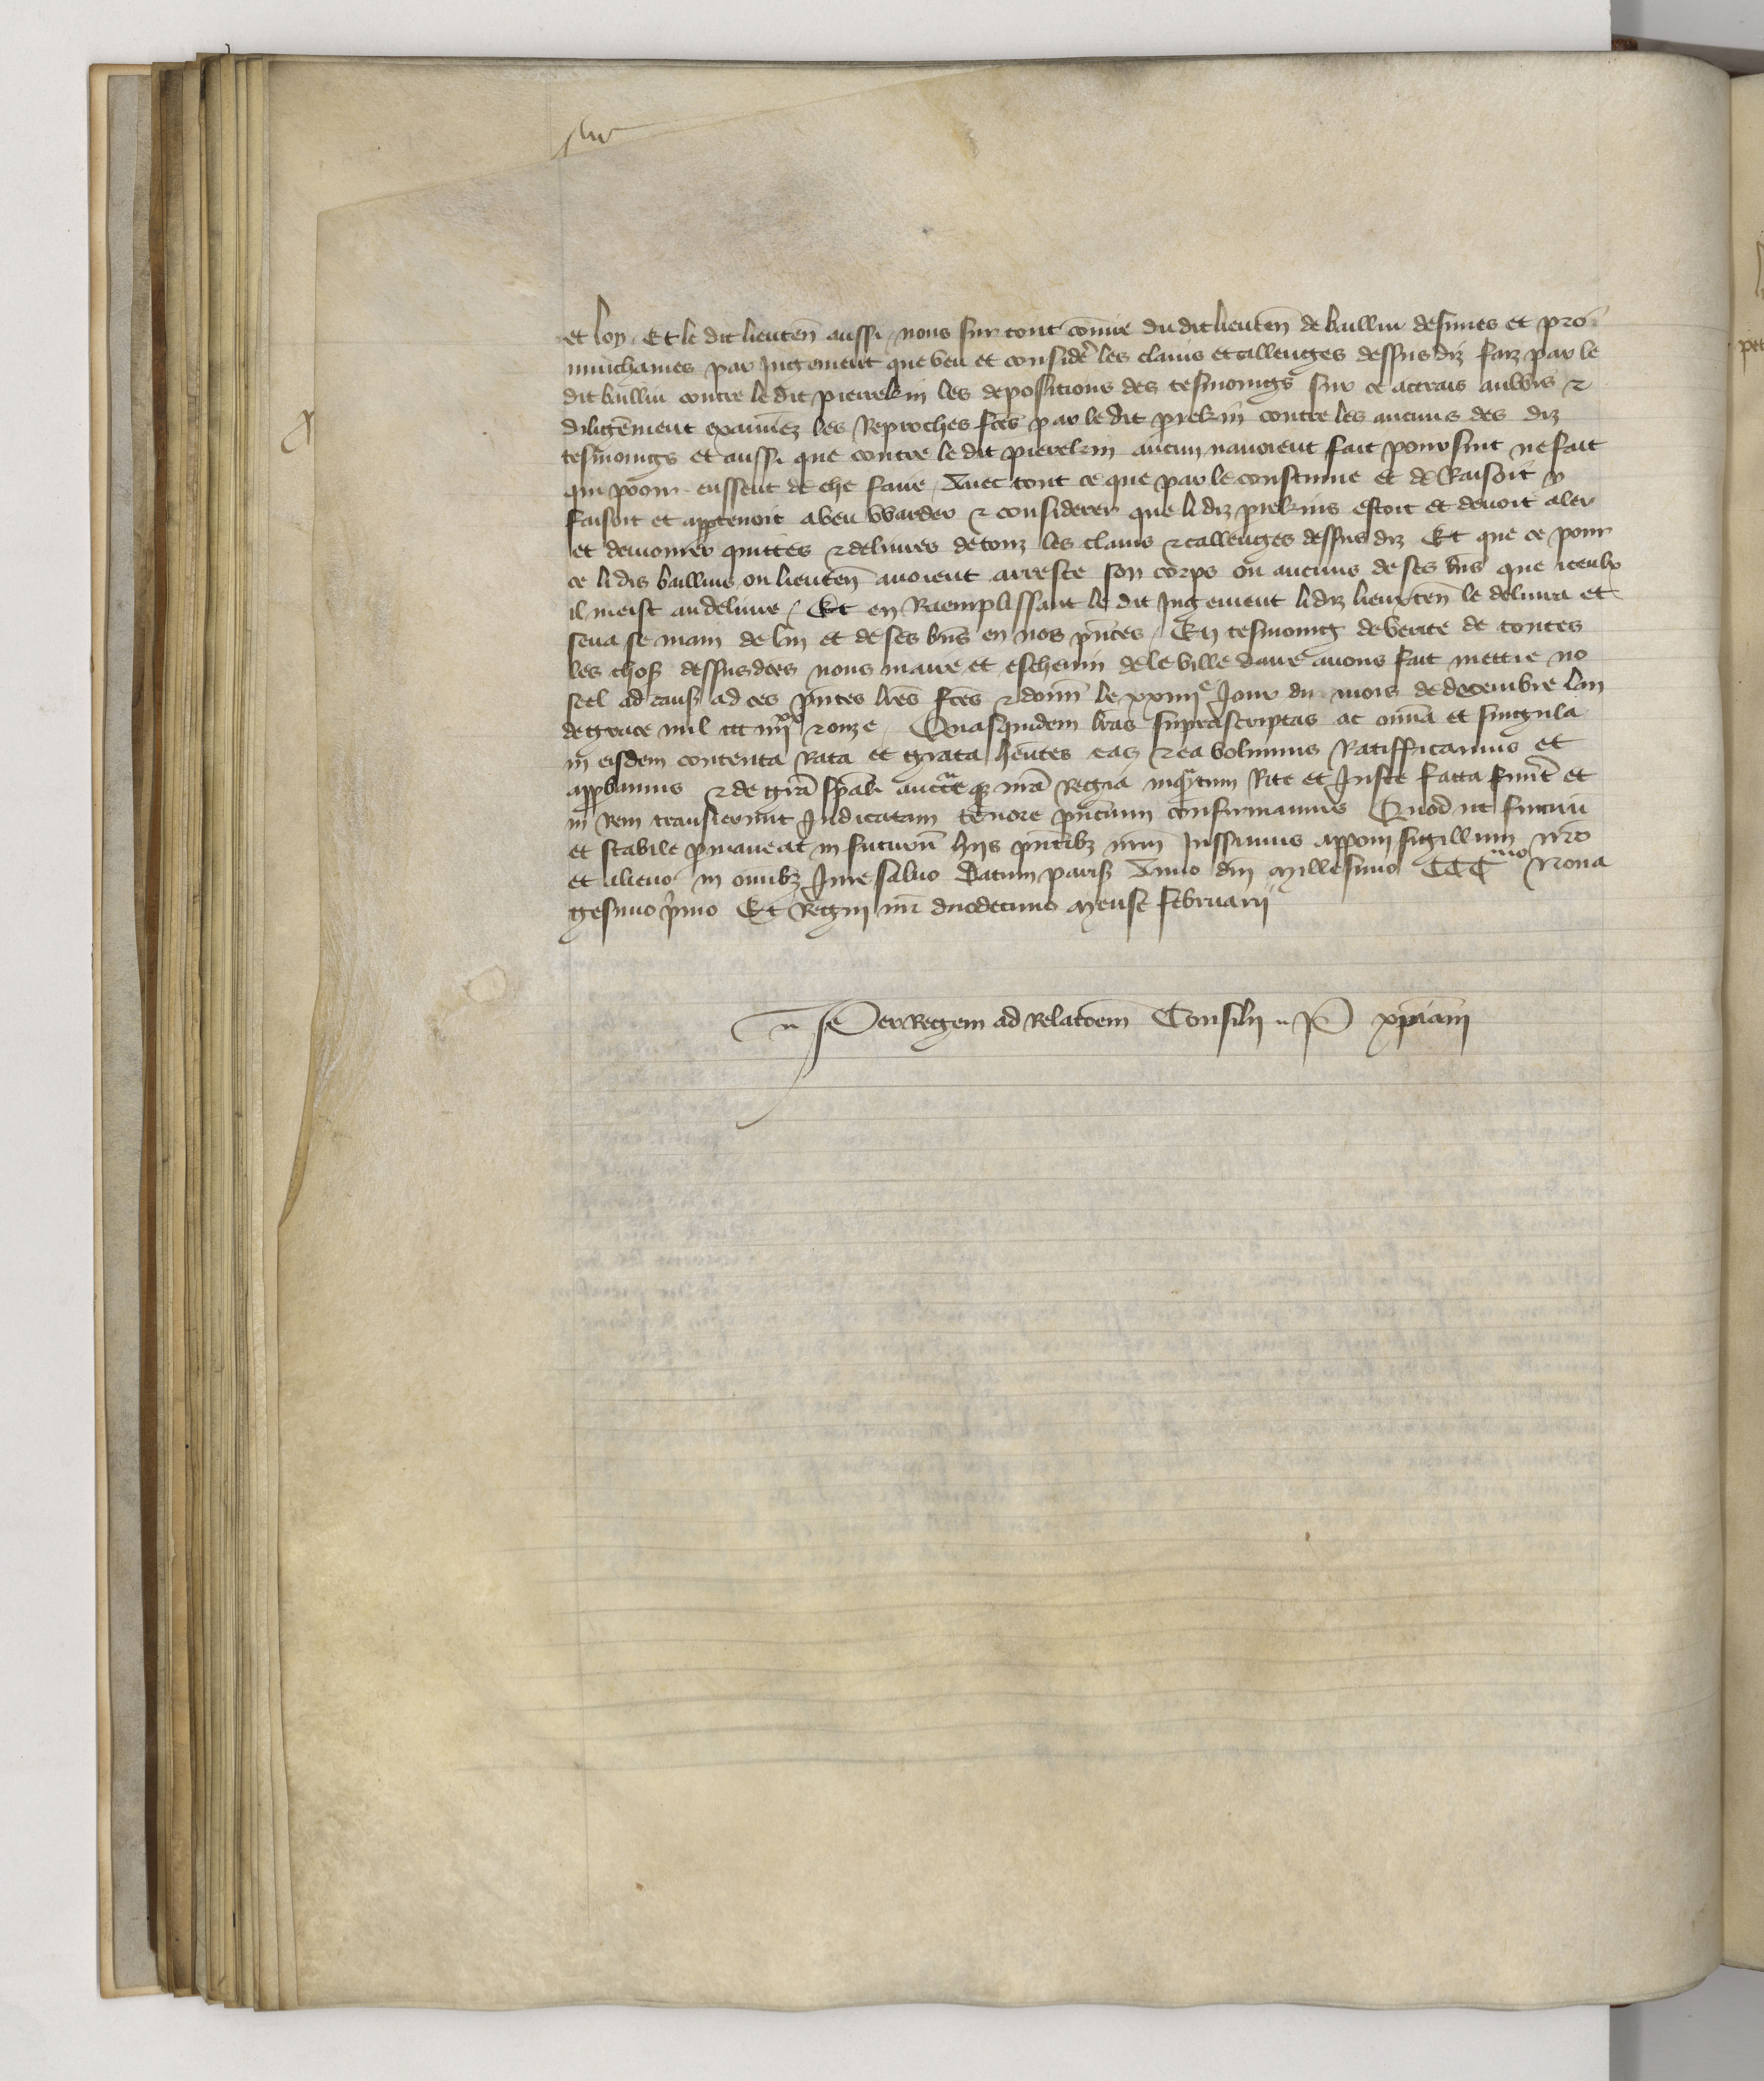 et loy. Et le dit lieuten̄ aussi. nous sur tout cōiure du dit lieuten̄ de bailliu desimes et pro
nunchames par Jugement que veu et consideŕ les claims et callenges dessus diz faiz par le
dit bailliu contre le dit pierrekin les depositions des tesmoings sur ce attrais aulwis ⁊
diligēment examinez les Reproches fc̄es par le dit prekin contre les aucuns des diz
tesmoings et aussi que contre le dit pierrekin aucun navoient fait poursuit ne fait
qui pooir eussent de che faire. Avec tout ce que par le coustume et de Raison y
faisoit et apptenoit a veu warder ⁊ considerer que li diz prekins estoit et devoit aler
et demourer quittes ⁊ delivres de touz les claims ⁊ callenges dessus diz Et que ce pour
ce li dis baillius ou lieuten̄ avoient arreste son corps ou aucuns de ses bn̄s que iceulx
il meist au delivre / Et en Raemplissant le dit Jugement li diz lieuxten̄ le delivra et
leva se main de lui et de ses bn̄s en nos pn̄ces / En tesmoing de verite de toutes
les chos dessusdc̄es nous maire et eschevin de le ville daire avons fait mettre no
seel ad caus ad ces pn̄tes lr̄es fc̄es ⁊ donn̄ le xxiiiie Jour du mois de decembre lan
de grace mil ccc iiiixx ⁊ onze. Quasquidem lr̄as suprascriptas ac omīa et singula
in eisdem contenta rata et grata hēntes eas ⁊ ea volumus Ratifficamus et
appbamus ⁊ de gr̄a spāli auctc̄teqz nr̄a Regia inqªtum Rite et Juste facta fuer̄t et
in Rem transierunt Judicatam tenore pn̄cium confirmamus Quod ut firmū
et stabile pmaneat in futurū hijs pn̄tibz nr̄m Jussimus apponi sigillum nr̄o
et alieno in omībz Jure salvo Datum paris Anno dn̄i Millesimo CCCmo Nona
gesimo p̄mo Et Regni nr̄i duodecimo Mense februarii
Per Regem ad Relatōem Consilii P xpīani